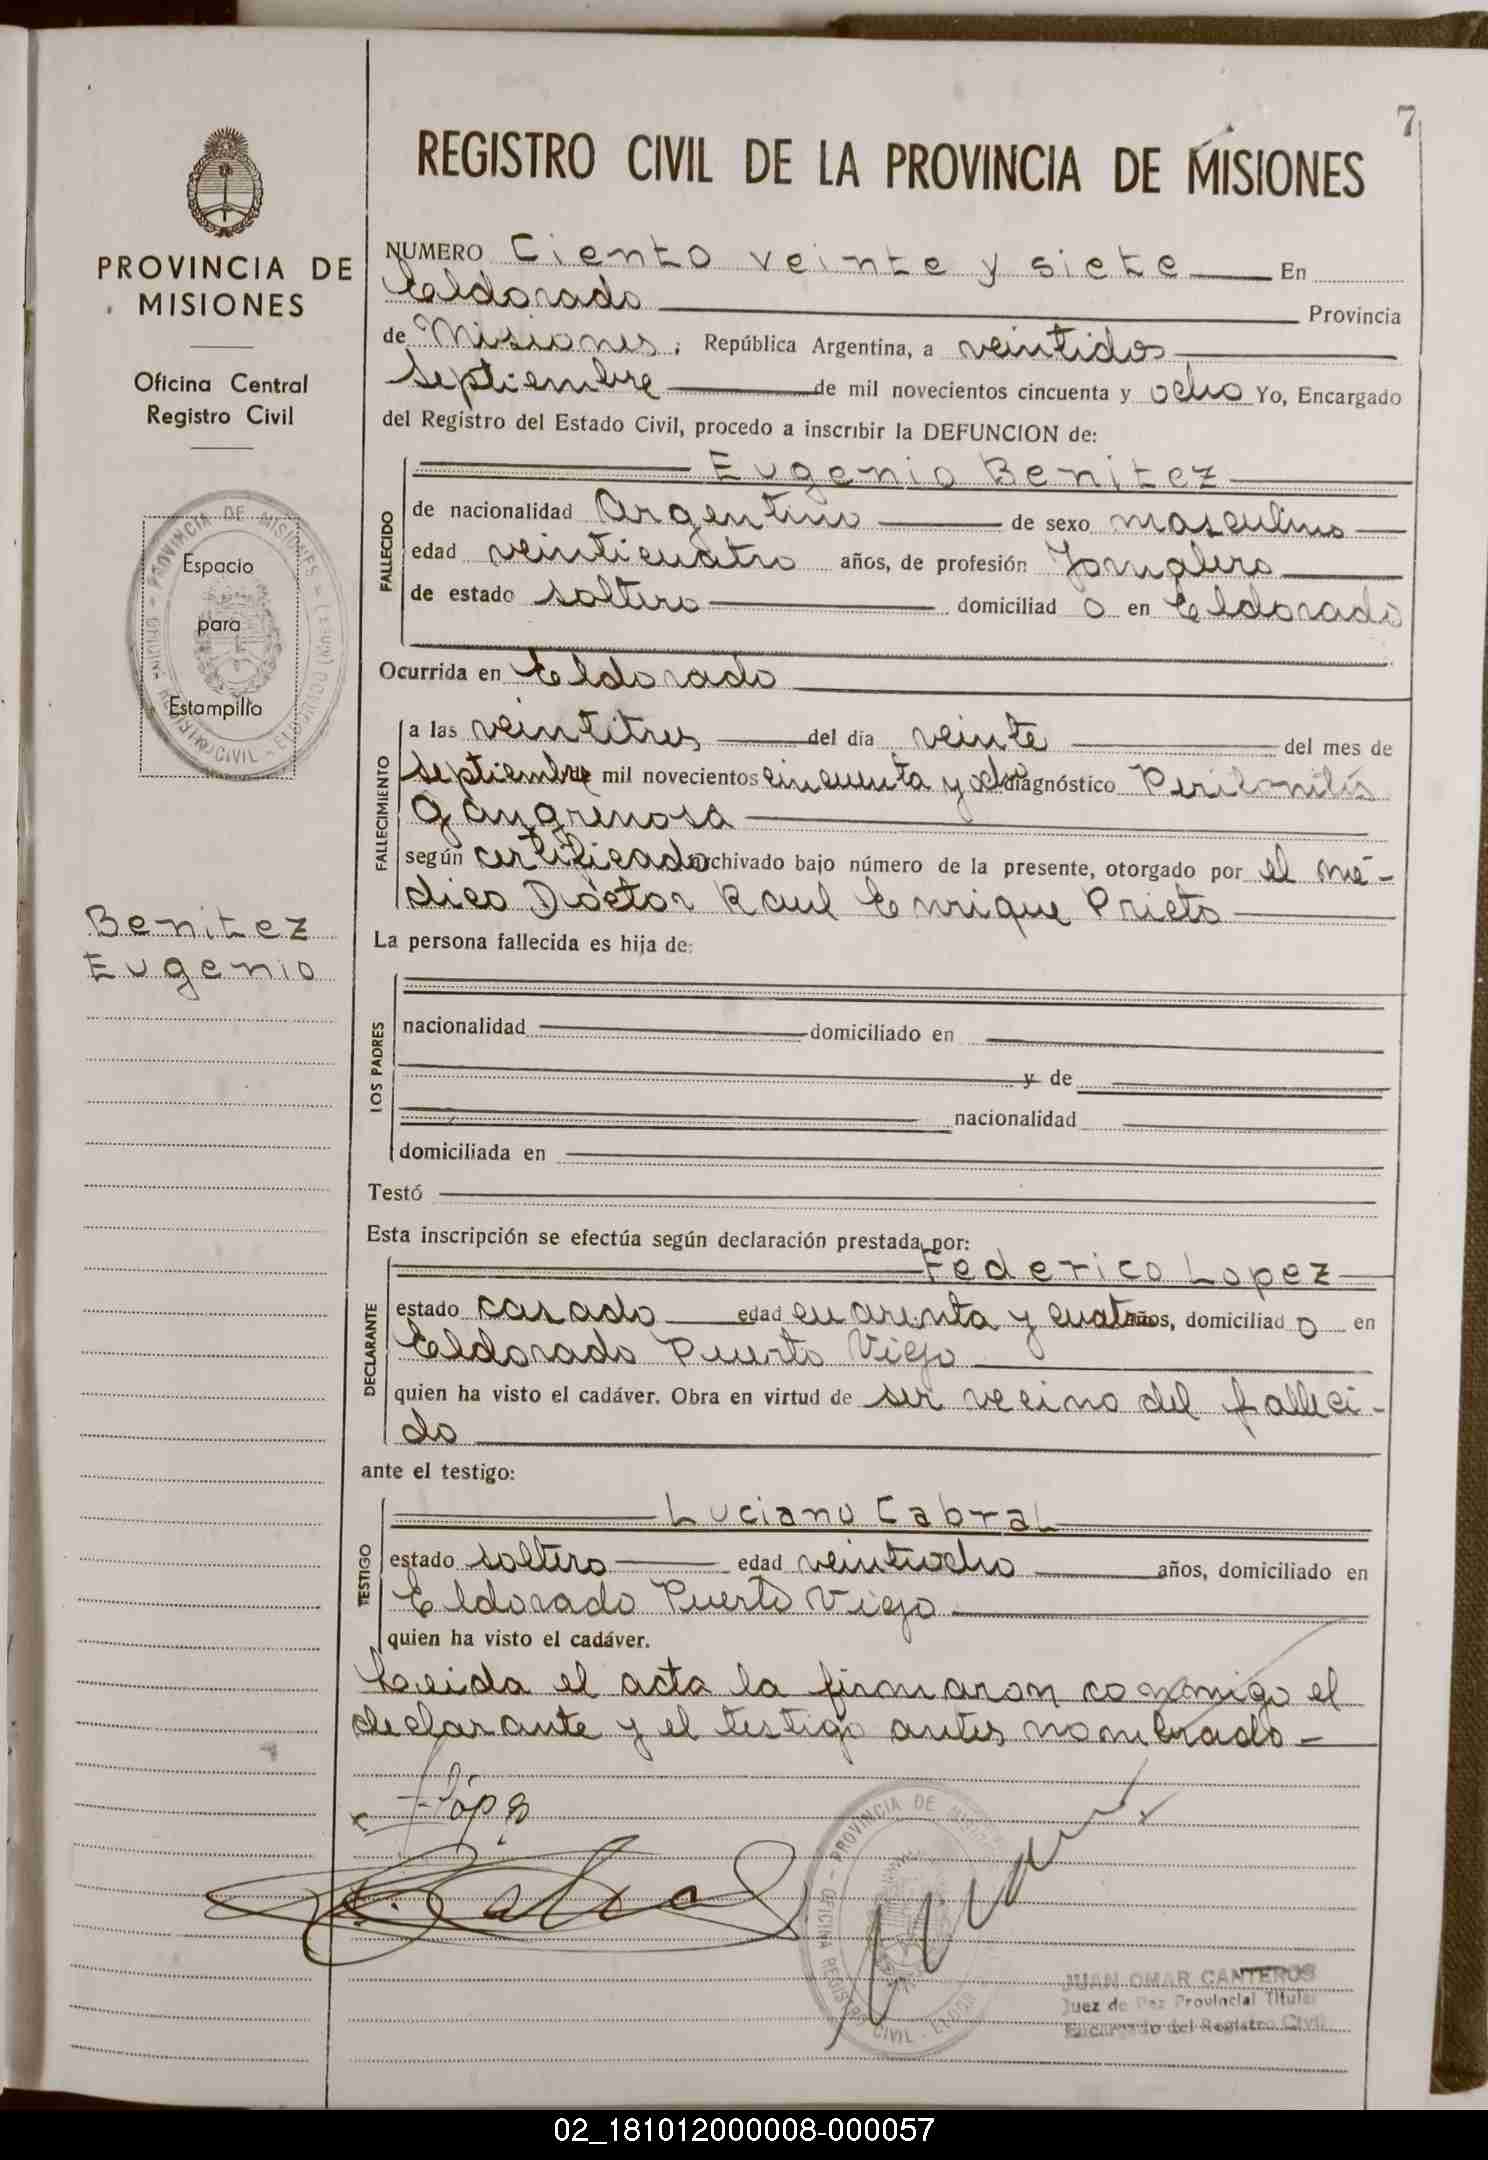 7
REGISTRO CIVIL DE LA PROVINCIA DE MISIONES
PROVINCIA DE
MISIONES
Oficina Central
Registro Civil
Espacio
para
Estampilla
Benitez
Eugenio
NUMERO Ciento veinte y siete En
Eldorado Provincia
de Misiones, República Argentina, a veintidos
Septiembre de mil novecientos cincuenta y ocho Yo, Encargado
del Registro del Estado Civil, procedo a inscribir la DEFUNCION de:
Eugenio Benitez
FALLECIDO
de nacionalidad Argentino de sexo masculino
edad veinticuatro años, de profesión Jornalero
de estado soltero domiciliad o en Eldorado
Ocurrida en Eldorado
FALLECIMIENTO
a las veintitres del día veinte del mes de
septiembre mil novecientos cincuenta y ocho diagnóstico Peritonitis
gangrenosa
según certificado archivado bajo número de la presente, otorgado por el mé-
dico Doctor Raul Enrique Prieto
La persona fallecida es hija de:
LOS PADRES
nacionalidad domiciliado en
y de
nacionalidad
domiciliada en
Testó
Esta inscripción se efectúa según declaración prestada por:
Federico Lopez
DECLARANTE
estado casado edad cuarenta y cuatro años, domiciliad o en
Eldorado Puerto Viejo
quien ha visto el cadáver. Obra en virtud de ser vecino del falleci-
do
ante el testigo:
Luciano Cabral
TESTIGO
estado soltero edad veintiocho años, domiciliado en
Eldorado Puerto Viejo
quien ha visto el cadáver.
Leida el acta la firmaron conmigo el
declarante y el testigo antes nombrado
PROVINCIA DE MISIONES
OFICINA REGISTRO CIVIL
JUAN OMAR CANTEROS
Juez de Paz Provincial Titular
Encargado del Registro Civil
02_181012000008-000057